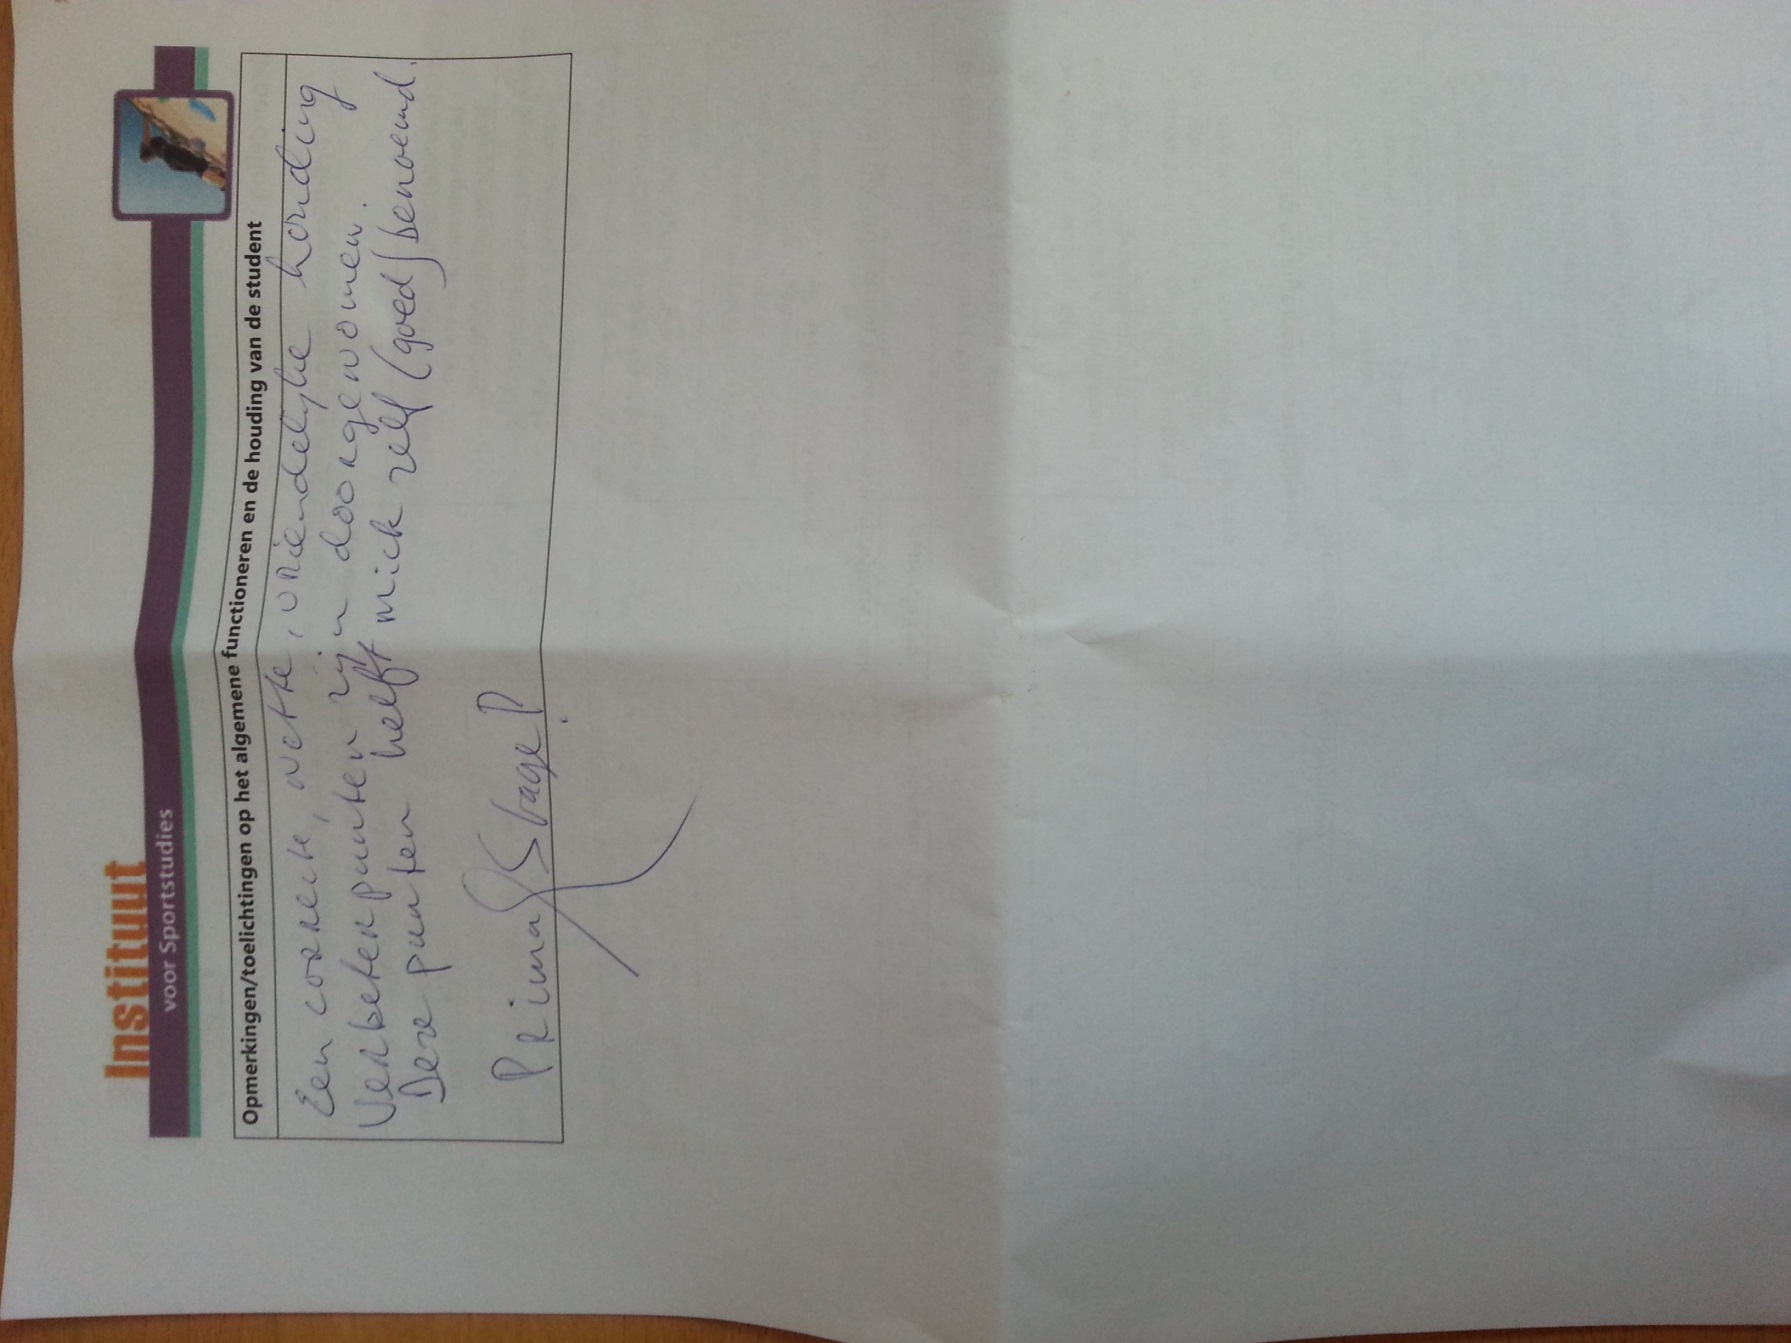 Instituut
voor Sportstudies
Opmerkingen/toelichtingen op het algemene functioneren en de houding van de student
Een correcte, nette, vriendelijke houding
Verbeterpunten zijn doorgenomen.
Deze punten heeft mick zelf (goed) benoemd.
Prima Stage!